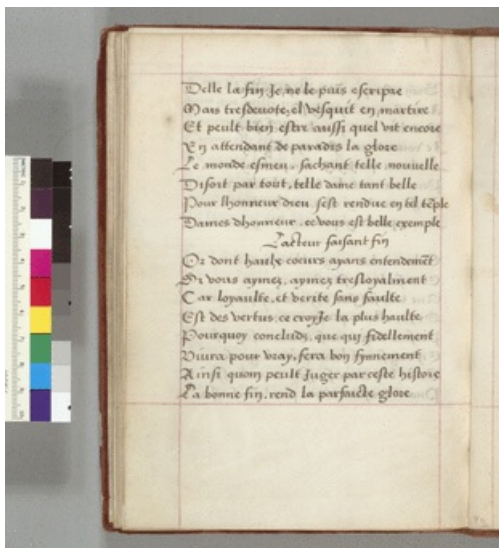 Delle la fin Je ne le puis escripre
Mais tresdevote, el vesquit en martire
Et peult bien estre aussi quel vit encore
En attendant de paradis la glore
Le monde esmeu, sachant telle nouvelle
Disoit par tout, telle dame tant belle
Pour lhonneur dieu, sest rendue en tel tẽple
Dames dhonneur, ce vous est belle exemple
Lacteur faisant fin
Or dont haulx coeurs ayans entendemẽt
Si vous aymez, aymez tresloyalment
Car loyaulte, et verite sans faulte
Est des vertus, ce croy Je la plus haulte
Pourquoy concludz, que qui fidellement
Vivra pour vray, fera bon fynnement
Ainsi quon peult Juger par ceste histore
La bonne fin, rend la parfaicte glore